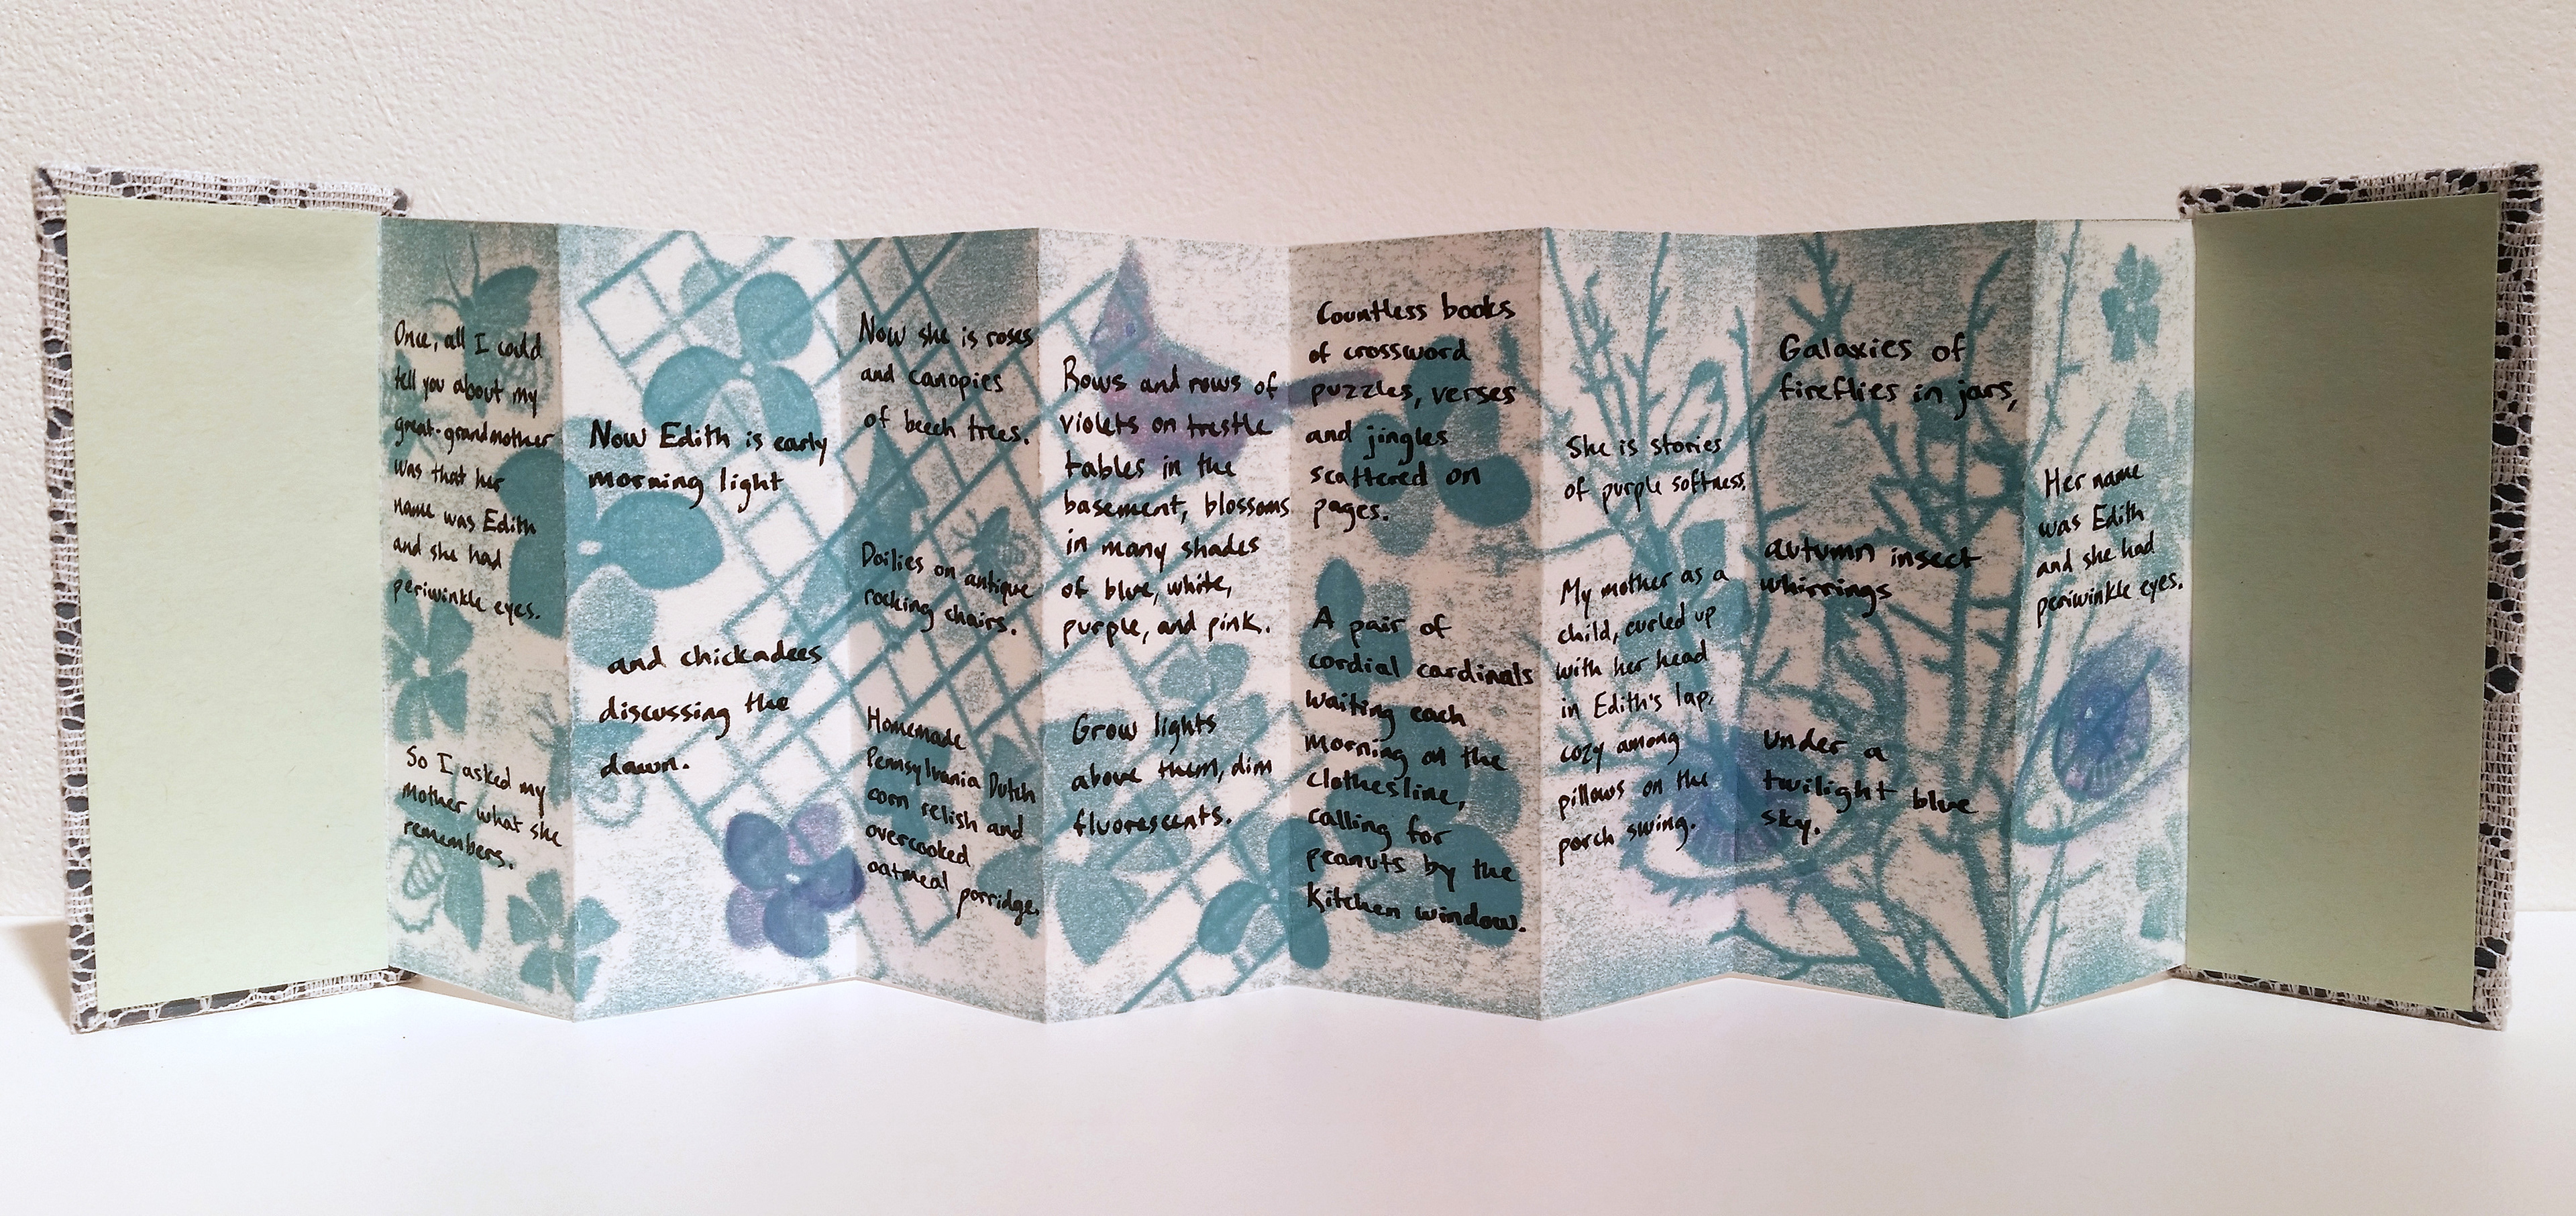 Once, all I could
tell you about my
great-grandmother
was that her
name was Edith
and she had
periwinkle eyes.
So I asked my
mother what she
remembers.
Now Edith is early
morning light
and chickadees
discussing the
dawn.
Now she is roses
and canopies
of beech trees.
Doilies on antique
rocking chairs.
Homemade
Pennsylvania Dutch
corn relish and
overcooked
oatmeal porridge.
Rows and rows of
violets on trestle
tables in the
basement, blossoms
in many shades
of blue, white,
purple, and pink.
Grow lights
above them, dim
fluorescents.
Countless books
of crossword
puzzles, verses
and jingles
scattered on
pages.
A pair of
cordial cardinals
waiting each
morning on the
clothesline,
calling for
peanuts by the
kitchen window.
She is stories
of purple softness.
My mother as a
child, curled up
with her head
in Edith's lap,
cozy among
pillows on the
porch swing.
Galaxies of
fireflies in jars,
autumn insect
whirrings
under a
twilight blue
sky.
Her name
was Edith
and she had
periwinkle eyes.